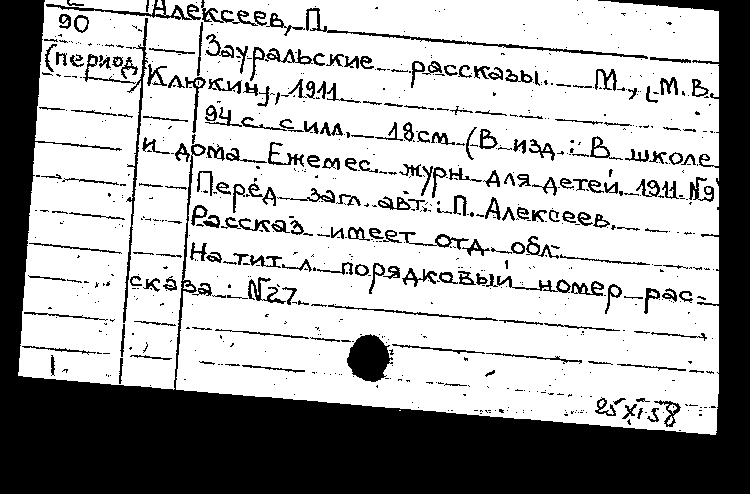 Алексеев, П.
90
(период)
Зауральские рассказы. М., [М.В.
Клюкин], 1911
94 с. с илл. 18см (В изд.: В школе
и дома. Ежемес. журн. для детей. 1911. №9
Перед загл. авт.: П. Алексеев.
Рассказ имеет отд. обл.
На тит. л. порядковый номер рас=
сказа: №27.
25 XI 58